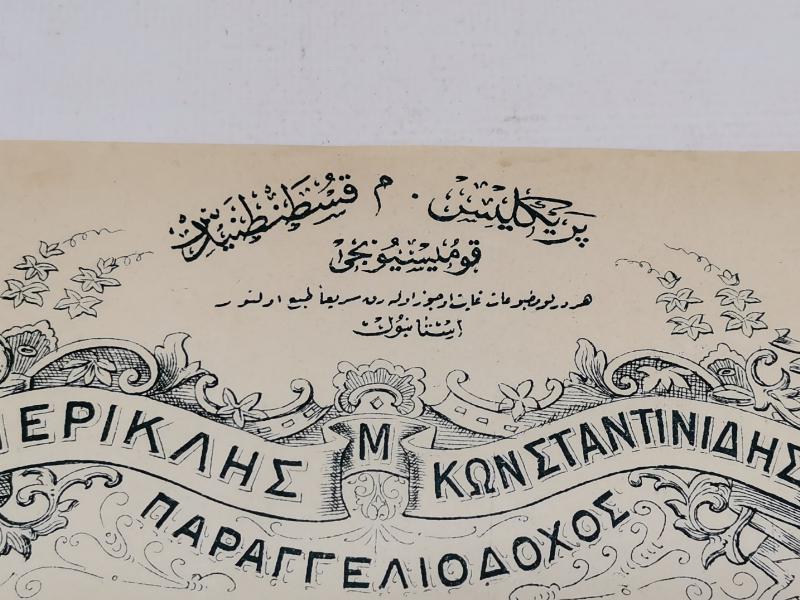 پريكليس . م قسطنطنيدس
قوميسيونجى
هر درلو مطبوعات غايت اوجوز اوله رق سريعاً طبع اولنور
استانبول
ΠΕΡΙΚΛΗΣ Μ ΚΩΝΣΤΑΝΤΙΝΙΔΗΣ
ΠΑΡΑΓΓΕΛΙΟΔΟΧΟΣ